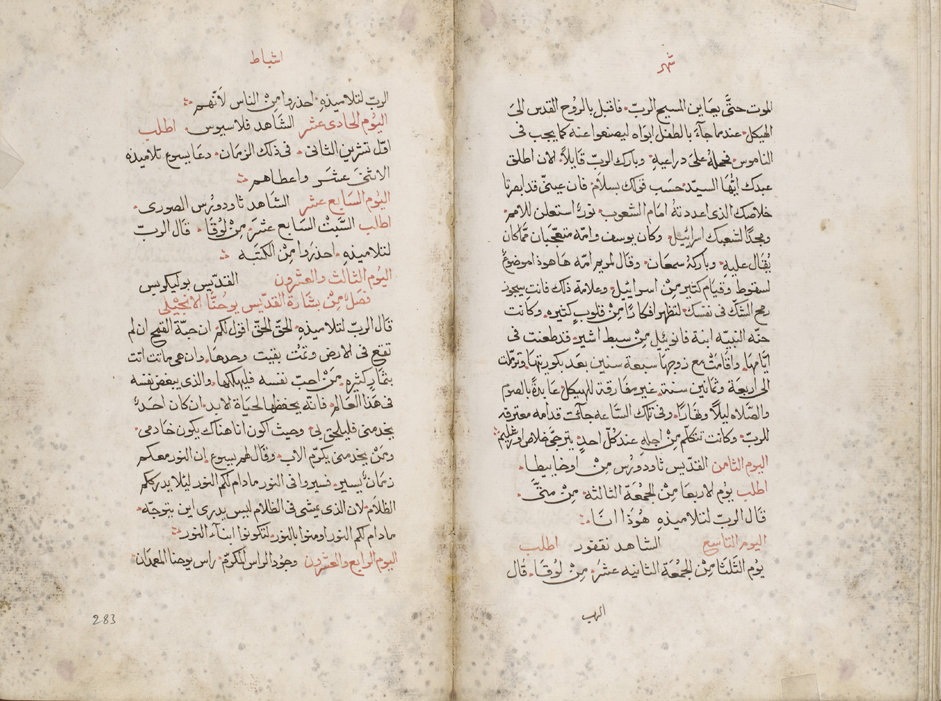 شهر
الموت حتَّى يعاين المسيح الربّ. فاقبل بالرُوح القدس الى
الهيكل. عندما جآء بالطفل ابواه ليصنعوا عنه كما يجب فى
الناموس. فحمله على دراعيهِ. وبارك الربّ قايلاً. الان اطلق
عبدك ايُّها السيّد. حسَب قولك بسلام. فان عينى قد ابصرتا
خلاصك الذى اعددته امام الشعوب. نورٌ استعلن للامم.
ومجدًا لشعبك اسراييل. وكان يوسف وامّه متعجّبان ممّا كان
يُقال عليهِ. وباركهُ سمعان. وقال لمريم امّه ها هوذا موضوعٌ
لسقوط وقيام كثير مِنْ اسراييل. وعلامة ذلك فانتِ يجوز
رمح الشك فى نفسك. لتظهر افكارًا مِنْ قلوبٍ كثيره. وكانت
حنّه النبيّه ابنة فانوييل مِنْ سبط اشير. قد طعنت فى
ايّامها. واقامتْ مع زوجها سبعة سنين بعد بكوريتها. وترمّلت
الى اربعة وثمانين سنة. غير مفارقة للهيكل عابدةً بالصوم
والصَلاه ليلاً ونهارًا. وفى تلك السَاعه جآت قدامه معترفه
للربّ. وكانت تتكلّم مِنْ اجلهِ عند كلّ احدٍ يترجى خلاص اورشليم
اليوم الثامن القدّيس ثاودورُس مِنْ اوخاييطا.
اطلب يوم الاربعا مِنْ الجمْعَة الثالثه. مِنْ متَّى.
قال الربّ لتلاميذهِ هُوَذا انَا.
اليوم التاسع الشاهد نقفور اطلب
يوْم الثلثا مِنْ الجمْعَة الثانيه عشرْ. مِنْ لوُقَا. قال
الرب
اشباط
الربّ لتلاميذهِ. احذروا مِنْ الناس لانّهم
اليوْم الحادى عشر الشاهد فلاسيوس. اطلب
اوّل تشرين الثانى. فى ذلك الزمَان. دعا يسوع تلاميذه
الاثنى عشر واعطاهم
اليوْم السَابع عشر الشاهد ثاودورُس الصورى.
اطلب السَّبْت السَّابع عشرَ مِنْ لوُقَا. قال الربّ
لتلاميذهِ. احذروا مِنْ الكتبَه
اليوْم الثالث والعشرون القدّيس بوليكربس
فصَلٌ مِنْ بشارة القدّيس يوحنَّا الانجيْلى
قال الربّ لتلاميذهِ. الحقّ الحقّ اقول لكم ان حبّة القمح ان لم
تقع فى الارض وتمُتْ بقيت وحدها. وان هى ماتت اتت
بثمارٍ كثيره. مَنْ احب نفسه فليهلكها. والذى يبغض نفسه
فى هَذا العَالم. فانّه يحفظها لحياة الابد. ان كان احدٌ
يخدمنى فليلحق بى. وحيث اكون انا هناك يكون خادمى.
ومَنْ يخدمنى يكرّم الاب. وقال لهم يسوع ان النور معكم
زمَانٌ يسير. فسيروا فى النور ما دام لكم النور ليَلا يدرككم
الظلَام. لان الذى يمشى فى الظلام ليس يدرى اين يتوجّه.
ما دام لكم النور. اومنوا بالنور. لتكونوا ابنآء النور.
اليوم الرابع والعشرون وجود الراس المكرّم. راس يوحنا المعمدان
283